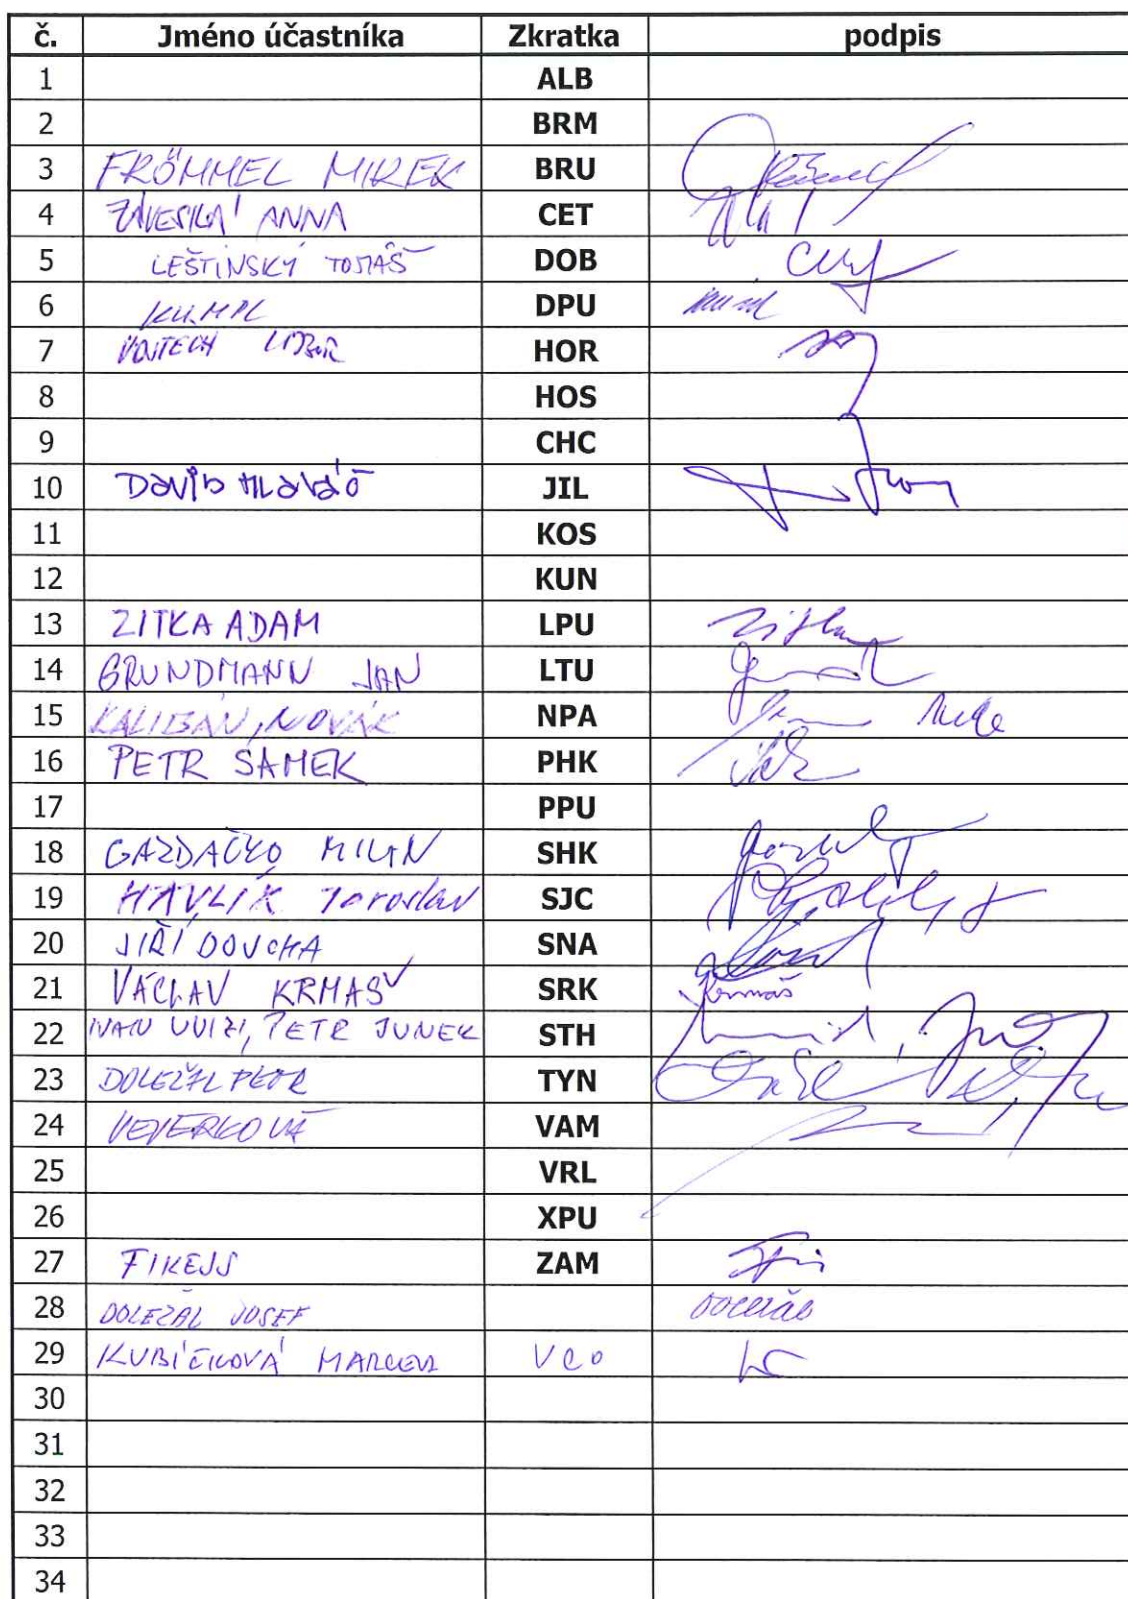 č. Jméno účastníka Zkratka podpis
1 ALB
2 BRM
3 FRÖMMEL MIREK BRU
4 ANNA CET
5 LEŠTINSKÝ TOMÁŠ DOB
6 KUMPL DPU
7 VOJTECH LIBOR HOR
8 HOS
9 CHC
10 DAVID HLAVÁČ JIL
11 KOS
12 KUN
13 ZITKA ADAM LPU Zitka
14 GRUNDMANN JAN LTU
15 KALIBÁN, NOVÁK NPA
16 PETR SÁMEK PHK
17 PPU
18 GAZDAČKO MILAN SHK
19 HAVLÍK Jaroslav SJC
20 JIŘÍ DOUCHA SNA
21 VÁCLAV KRMAŠ SRK Krmaš
22 IVAN UVIZI, PETR JUNEK STH
23 DOLEŽAL PETR TYN
24 VEVERKOVÁ VAM
25 VRL
26 XPU
27 FIKEJS ZAM
28 DOLEŽAL JOSEF Doležal
29 KUBÍČKOVÁ MARCELA VCO
30
31
32
33
34